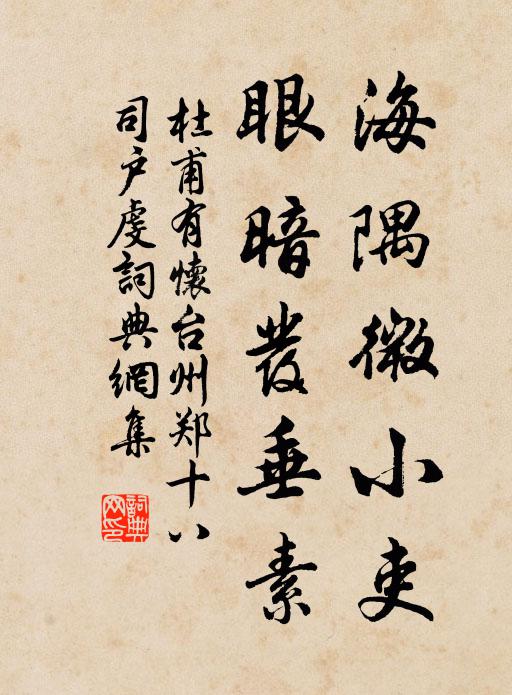 海隅微小吏
眼暗發垂素
杜甫有懷台州郑十八
司户虔詞典網集
詞典
网印